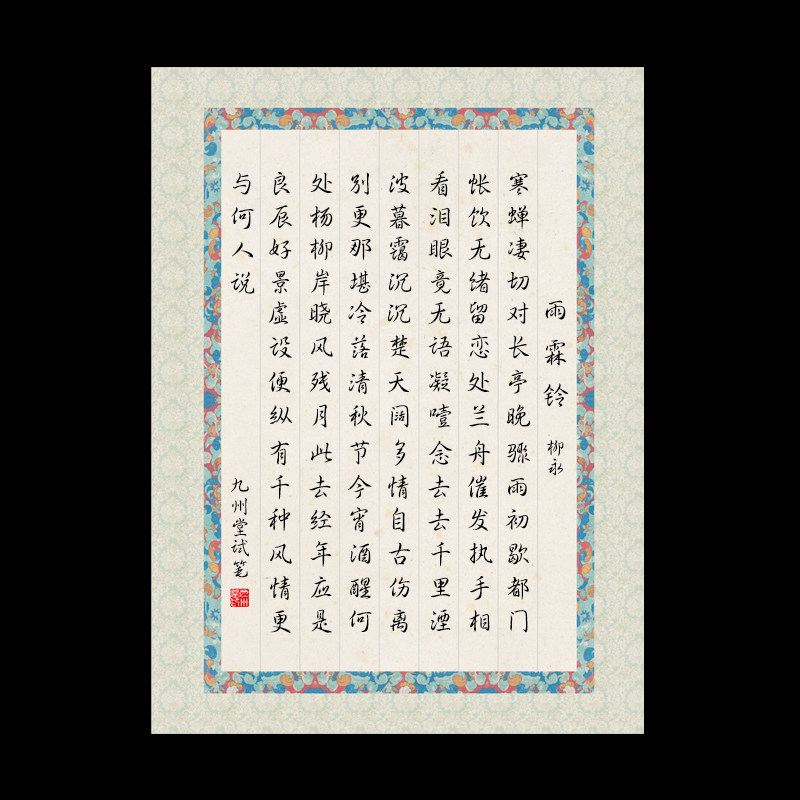 雨霖铃 柳永
寒蝉凄切对长亭晚骤雨初歇都门
帐饮无绪留恋处兰舟催发执手相
看泪眼竟无语凝噎念去去千里湮
波暮霭沉沉楚天阔多情自古伤离
别更那堪冷落清秋节今宵酒醒何
处杨柳岸晓风残月此去经年应是
良辰好景虚设便纵有千种风情更
与何人说
九州堂试笔